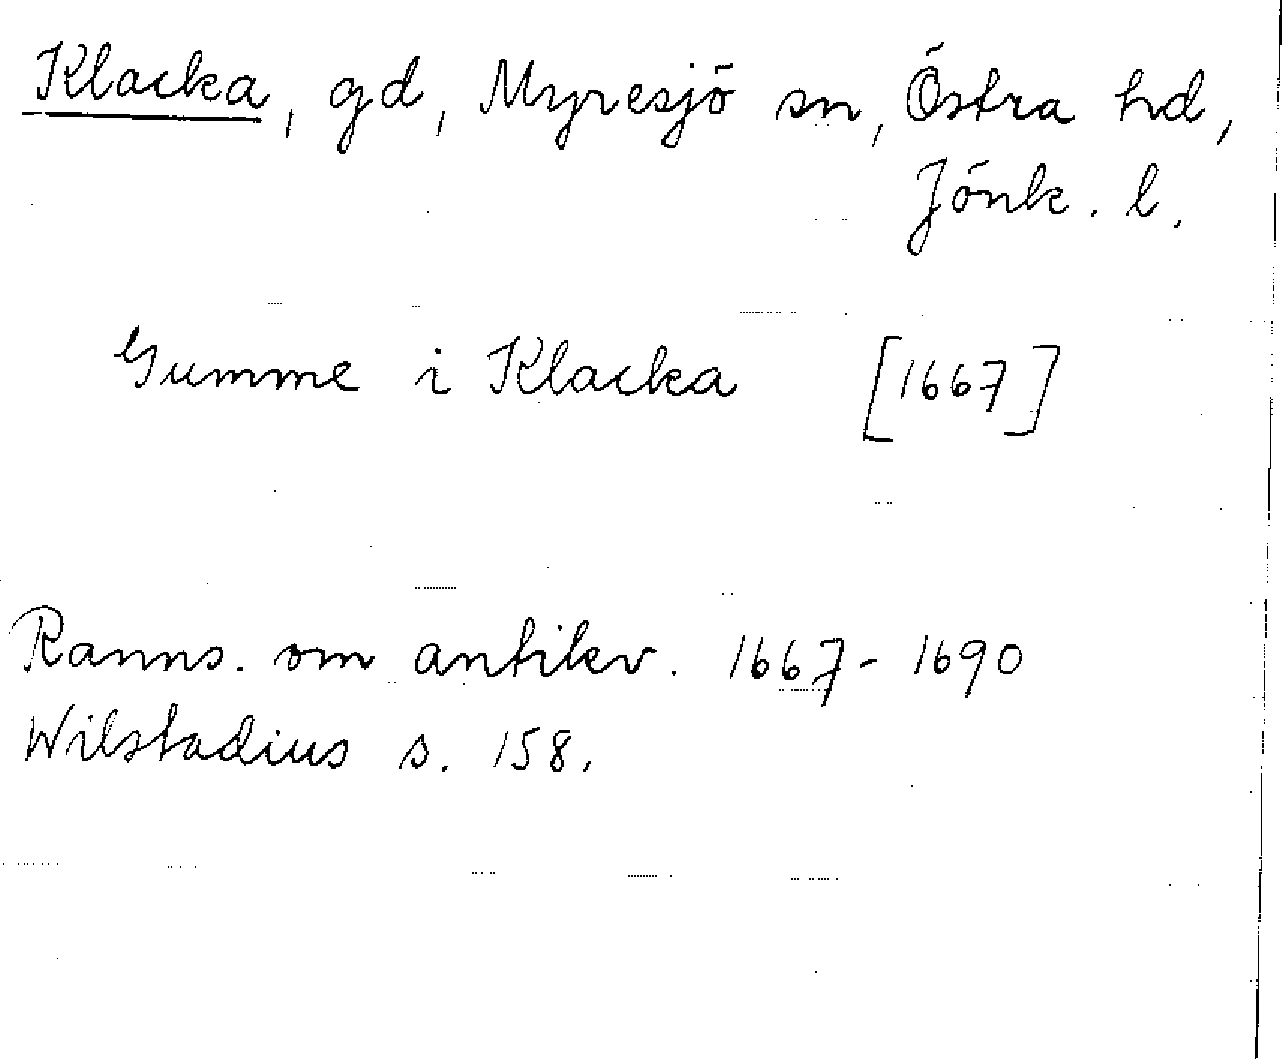 Klacka, gd, Myresjö sn, Östra hd,
Jönk. l.
Gumme i Klacka [1667]
Ranns. om antikv. 1667- 1690
Wilstadius s. 158.